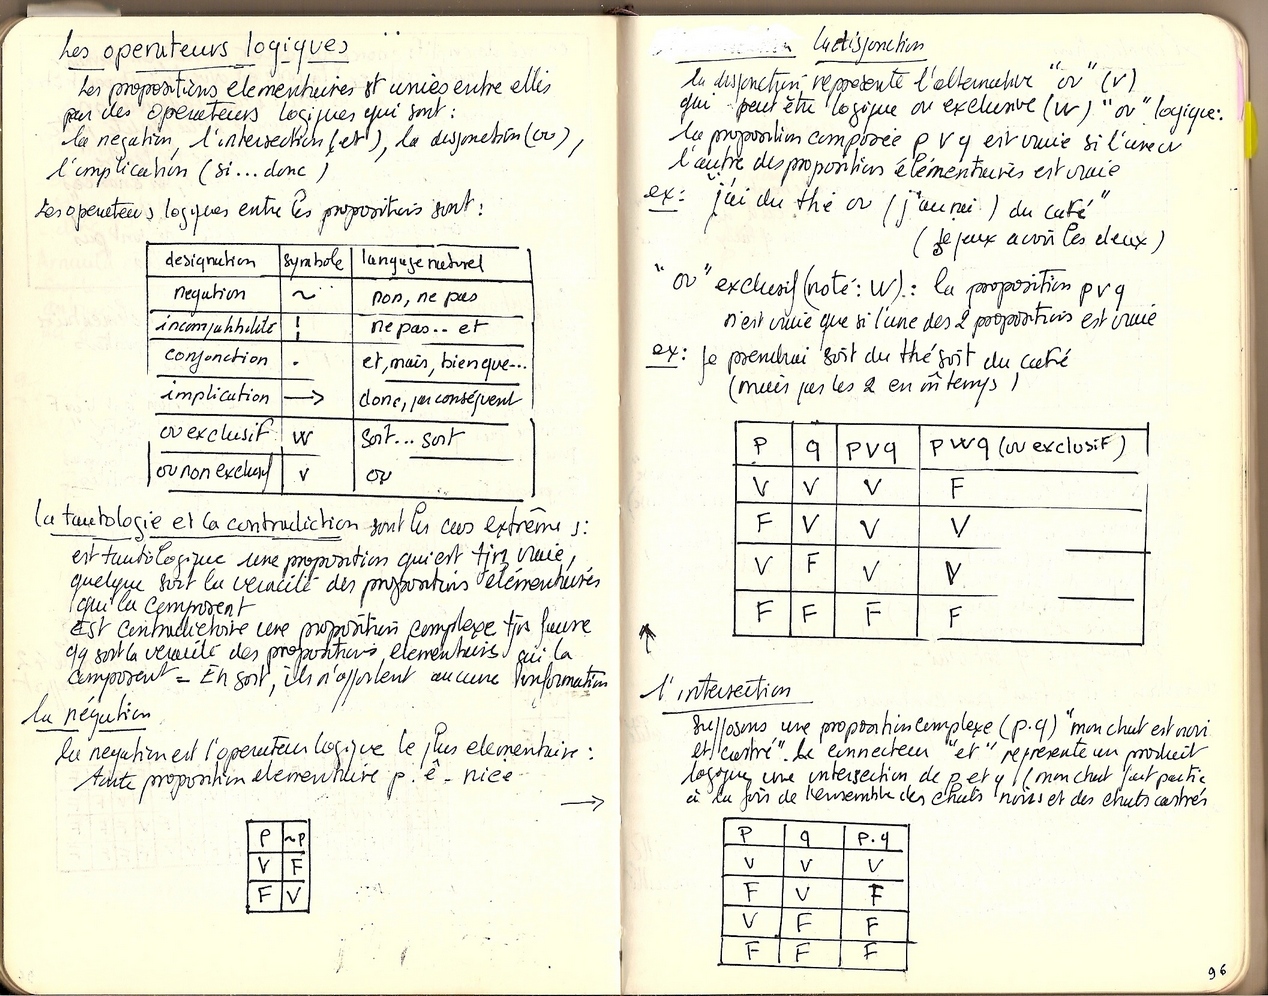 Les operateurs logiques
Les propositions elementaires st unies entre elles
par des operateurs logiques qui sont :
la negation, l'intersection (et), la disjonction (ou),
l'implication (si... donc)
Les operateurs logiques entre les propositions sont :
designation symbole langage naturel
negation ~ non, ne pas
incompatibilité | ne pas.. et
conjonction . et, mais, bien que...
implication → donc, par conséquent
ou exclusif w soit... soit
ou non exclusif v ou
la tautologie et la contradiction sont les cas extrêmes :
est tautologique une proposition qui est tjrs vraie,
quelque soit la veracité des propositions élémentaires
qui la composent
Est contradictoire une proposition complexe tjrs fausse
qq soit la veracité des propositions elementaires qui la
composent = En sort, ils n'apportent aucune information
la négation
la negation est l'operateur logique le plus elementaire :
toute proposition elementaire p. ê - niée
→
p ~p
V F
F V
la disjonction
la disjonction représente l'alternative "ou" (v)
qui peut être logique ou exclusive (w) "ou" logique :
la proposition composée p v q est vraie si l'une ou
l'autre des propositions élémentaires est vraie
ex : "j'ai du thé ou (j'aurai) du café"
(je peux avoir les deux)
"ou" exclusif (noté : W) : la proposition p v q
n'est vraie que si l'une des 2 propositions est vraie
ex : je prendrai soit du thé soit du café
(mais pas les 2 en m̂ temps)
p q p v q p w q (ou exclusif)
V V V F
F V V V
V F V V
F F F F
l'intersection
Supposons une proposition complexe (p.q) "mon chat est noir
et castré". Le connecteur "et" représente un produit
logique une intersection de p et q (mon chat fait partie
à la fois de l'ensemble des chats noirs et des chats castrés
p q p.q
V V V
F V F
V F F
F F F
96